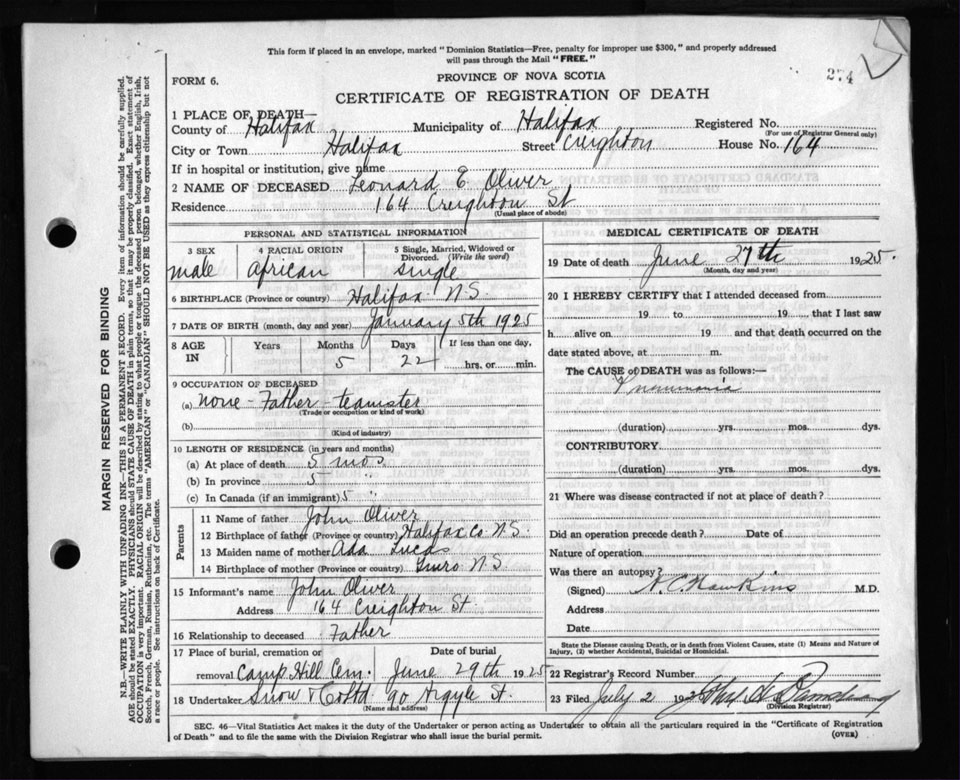 This form if placed in an envelope, marked "Dominion Statistics—Free, penalty for improper use $300," and properly addressed
will pass through the Mail "FREE."
274
FORM 6.
PROVINCE OF NOVA SCOTIA
CERTIFICATE OF REGISTRATION OF DEATH
1 PLACE OF DEATH—
County of Halifax Municipality of Halifax Registered No.
(For use of Registrar General only)
City or Town Halifax Street Creighton House No. 164
If in hospital or institution, give name
2 NAME OF DECEASED Leonard E Oliver
Residence 164 Creighton St
(Usual place of abode)
PERSONAL AND STATISTICAL INFORMATION
3 SEX 4 RACIAL ORIGIN 5 Single, Married, Widowed or
Divorced. (Write the word)
male African single
6 BIRTHPLACE (Province or country) Halifax N.S.
7 DATE OF BIRTH (month, day and year) January 5th 1925
8 AGE IN Years Months Days If less than one day,
5 22 hrs. or min.
9 OCCUPATION OF DECEASED
(a) none - Father - teamster
(Trade or occupation or kind of work)
(b)
(Kind of industry)
10 LENGTH OF RESIDENCE (in years and months)
(a) At place of death 5 mos
(b) In province 5 "
(c) In Canada (if an immigrant) 5 "
Parents
11 Name of father John Oliver
12 Birthplace of father (Province or country) Halifax Co N.S.
13 Maiden name of mother Ada Lucas
14 Birthplace of mother (Province or country) Truro N S
15 Informant's name John Oliver
Address 164 Creighton St.
16 Relationship to deceased Father
17 Place of burial, cremation or Date of burial
removal Camp Hill Cem. June 29th 1925
18 Undertaker Snow & Co Ltd 90 Argyle St.
(Name and address)
MEDICAL CERTIFICATE OF DEATH
19 Date of death June 27th 1925.
(Month, day and year)
20 I HEREBY CERTIFY that I attended deceased from
19 to 19 that I last saw
h alive on 19 and that death occurred on the
date stated above, at m.
The CAUSE of DEATH was as follows:—
Pneumonia
(duration) yrs. mos. dys.
CONTRIBUTORY
(duration) yrs. mos. dys.
21 Where was disease contracted if not at place of death?
Did an operation precede death? Date of
Nature of operation
Was there an autopsy?
(Signed) N.C. Hawkins M.D.
Address
Date
State the Disease causing Death, or in death from Violent Causes, state (1) Means and Nature of
Injury, (2) whether Accidental, Suicidal or Homicidal.
22 Registrar's Record Number
23 Filed July 2 192
(Division Registrar)
SEC. 46—Vital Statistics Act makes it the duty of the Undertaker or person acting as Undertaker to obtain all the particulars required in the "Certificate of Registration
of Death" and to file the same with the Division Registrar who shall issue the burial permit.
(OVER)
MARGIN RESERVED FOR BINDING
N.B.—WRITE PLAINLY WITH UNFADING INK—THIS IS A PERMANENT RECORD. Every item of information should be carefully supplied.
AGE should be stated EXACTLY. PHYSICIANS should STATE CAUSE OF DEATH in plain terms, so that it may be properly classified. Exact statement of
OCCUPATION is very important. RACIAL ORIGIN will be described by stating to what people or tongue the deceased person belonged, whether English, Irish,
Scotch, French, German, Russian, Ruthenian, etc. The terms "AMERICAN" or "CANADIAN" SHOULD NOT BE USED as they express citizenship but not
a race or people. See instructions on back of Certificate.